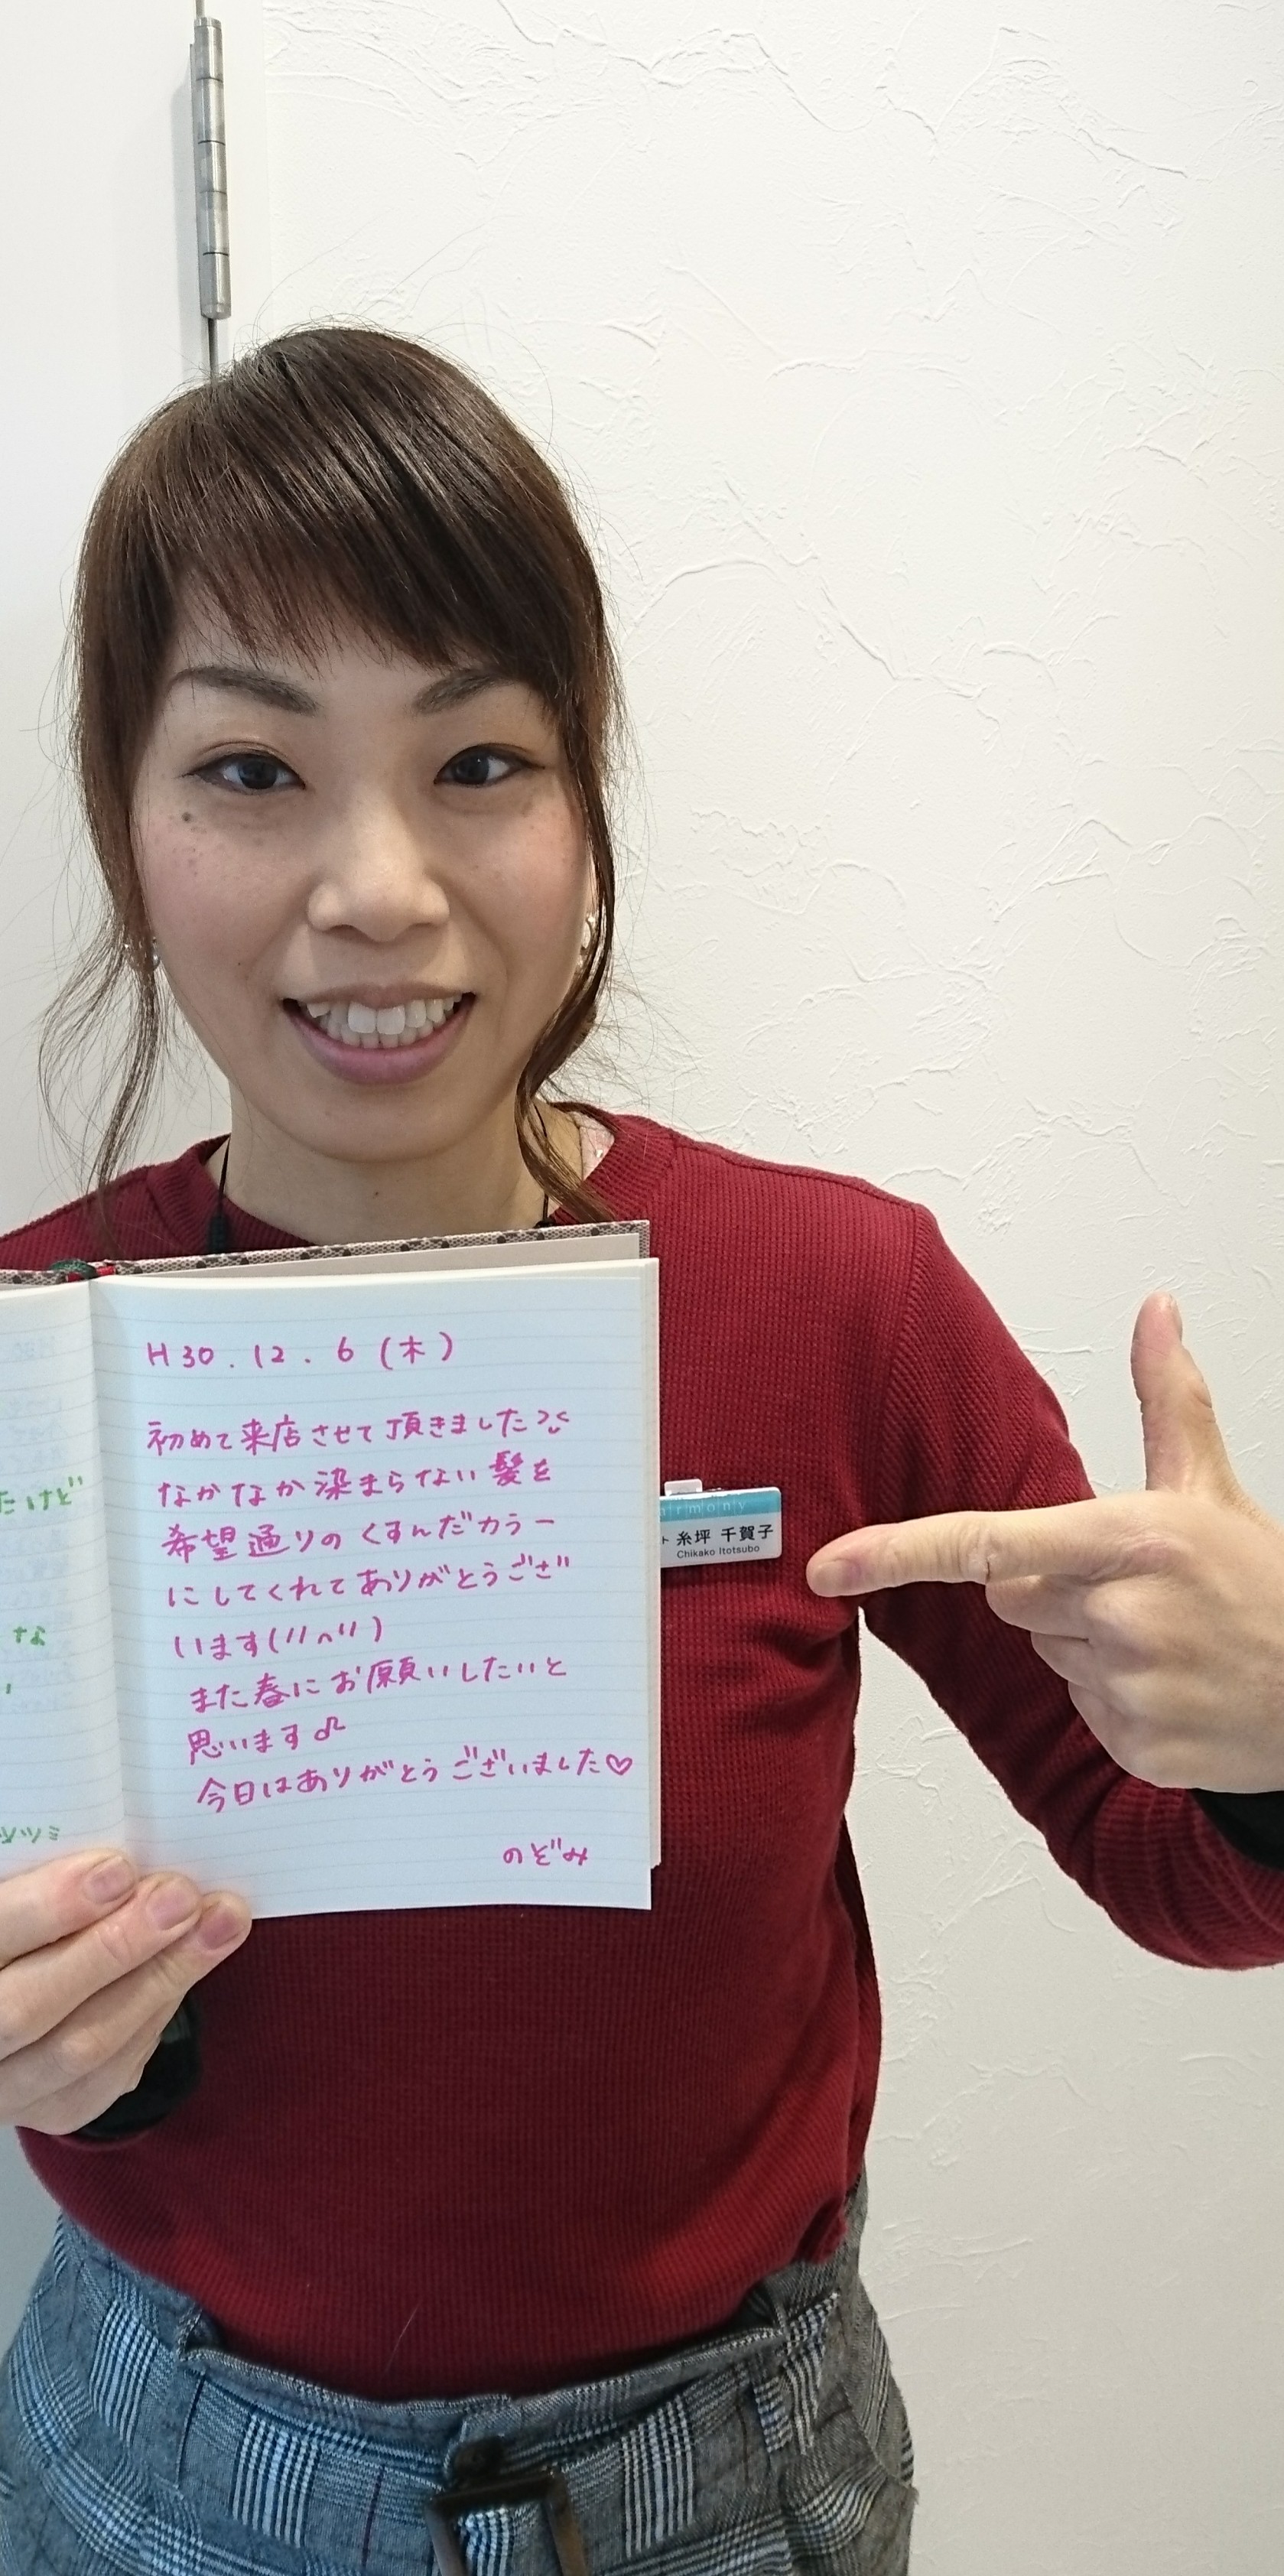 H30.12.6(木)
初めて来店させて頂きました
なかなか染まらない髪を
希望通りのくすんだカラー
にしてくれてありがとうござ
います(〃^〃)
また春にお願いしたいと
思います♫
今日はありがとうございました♡
のぞみ
たけど
すな
ツミ
rmony
ト 糸坪 千賀子
Chikako Itotsubo